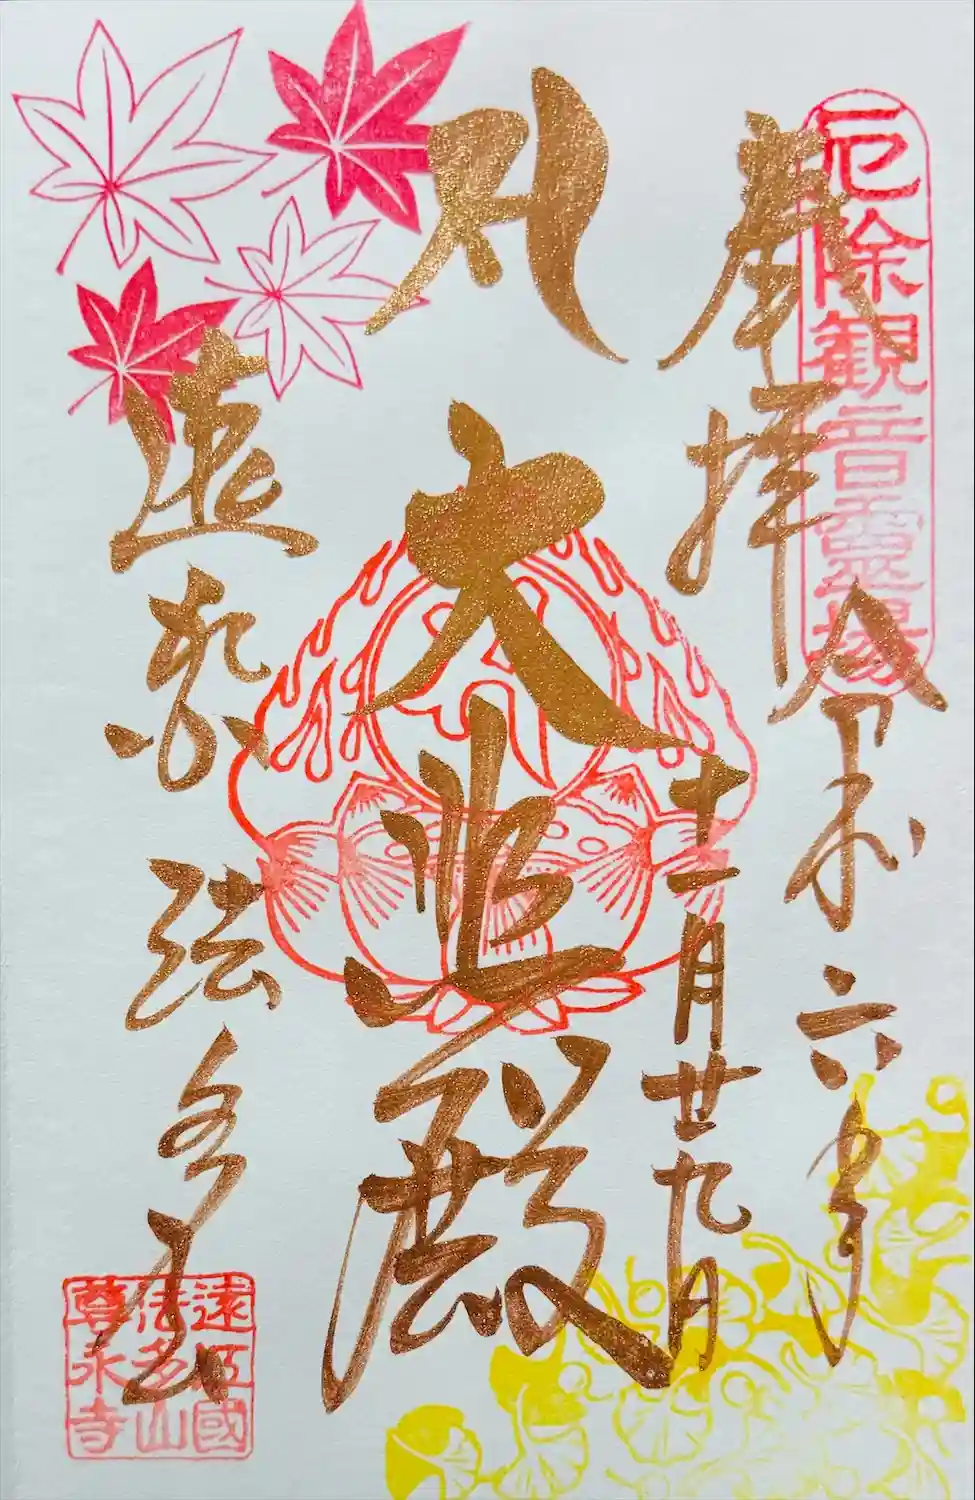 厄除観音霊場
奉拝
令和六年
十一月廿九日
大悲殿
法多山
遠江國
法多山
尊永寺